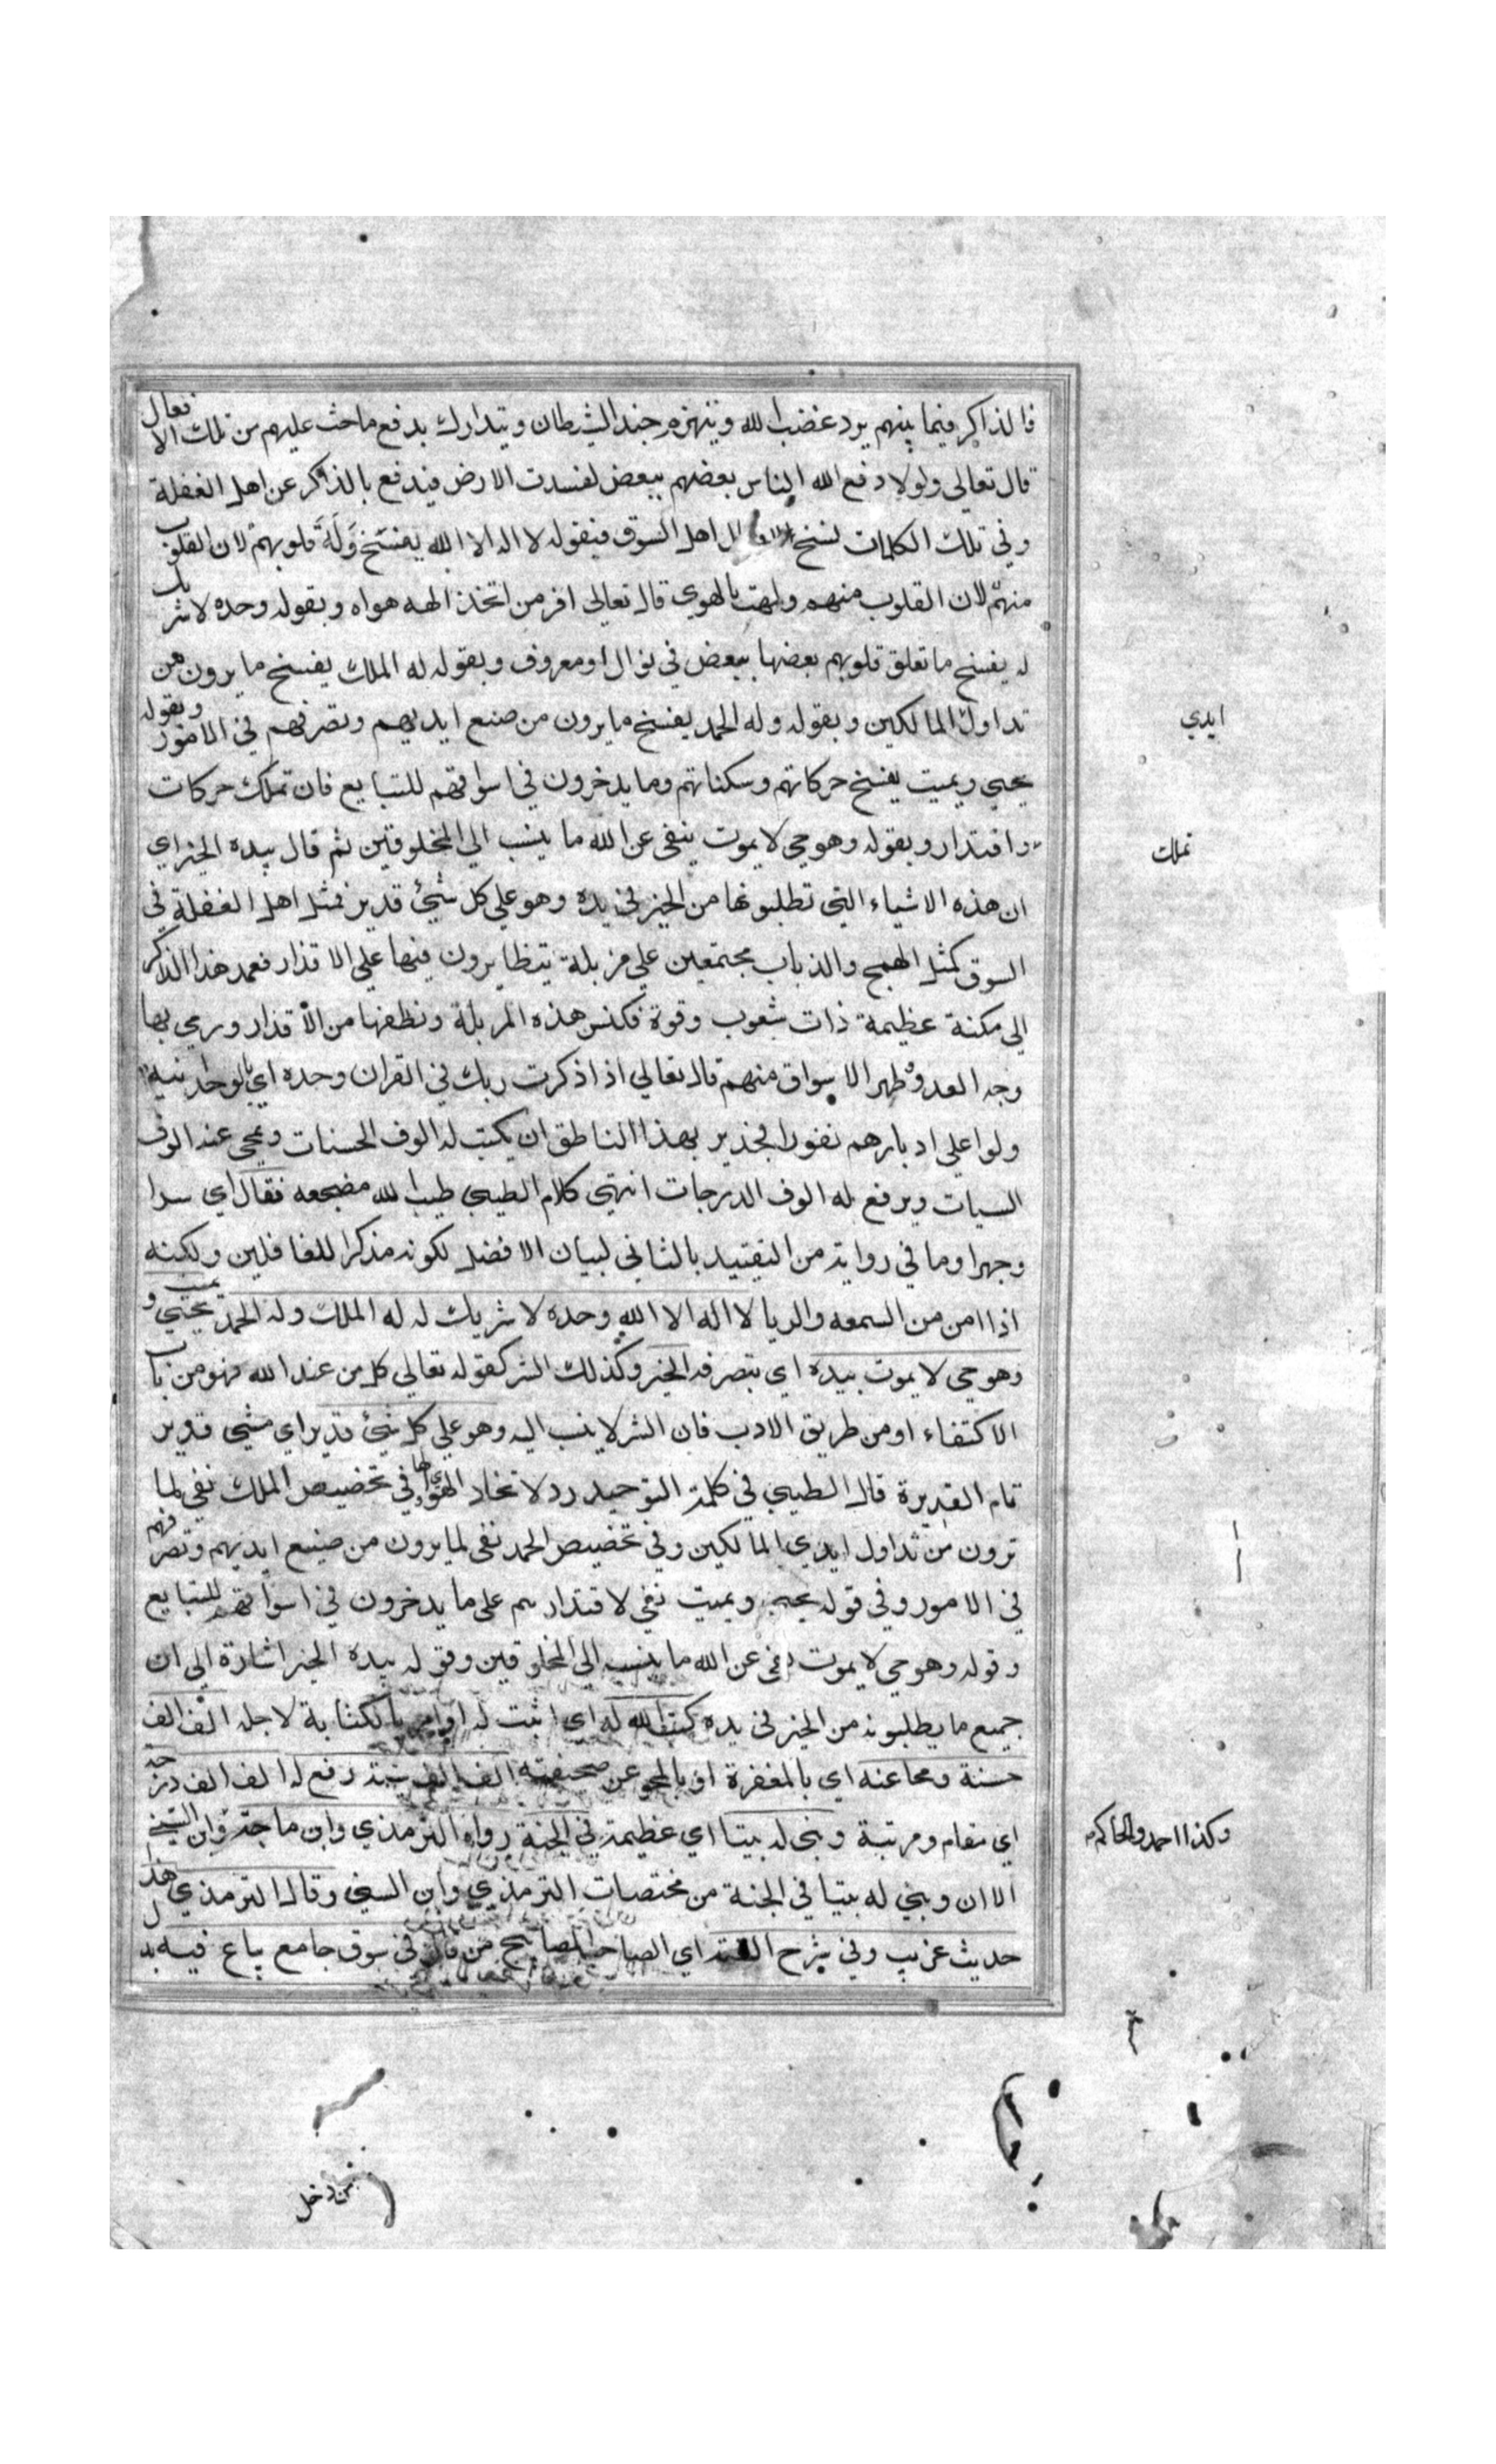 فالذاكر فيما بينهم يرد غضب الله وينهزم جند الشيطان ويتدارك بدفع ماحث عليهم من تلك الافعال
قال تعالى ولولا دفع الله الناس بعضهم ببعض لفسدت الارض فيدفع بالذاكر عن اهل الغفلة
وفي تلك الكلمات نسخ اهل السوق فبقوله لا اله الا الله يفسخ وله قلوبهم لان القلوب
منهم لان القلوب منهم ولهت بالهوى قال تعالى افرء من اتخذ الهه هواه وبقوله وحده لا شريك
له يفسخ ما تعلق قلوبهم بعضها ببعض في نوال او معروف وبقوله له الملك يفسخ ما يرون من
تداول المالكين وبقوله وله الحمد يفسخ ما يرون من صنع ايديهم وتصرفهم في الامور وبقوله
ايدي
يحيي ويميت يفسخ حركاتهم وسكناتهم وما يدخرون في اسواقهم للتبايع فان تملك حركات
واقتدار وبقوله وهو حي لا يموت ينفى عن الله ما ينسب الي المخلوقين ثم قال بيده الخير اي
تملك
ان هذه الاشياء التي تطلبونها من الخير في يده وهو علي كل شيئ قدير فمثل اهل الغفلة في
السوق كمثل الهمج والذباب مجتمعين علي مزبلة يتطايرون فيها علي الاقذار فعمد هذا الذاكر
الي مكنة عظيمة ذات شعوب وقوة فكنس هذه المزبلة ونظفها من الأقذار ورمي بها
وجه العدو وطهر الاسواق منهم قال تعالي اذا ذكرت ربك في القران وحده اي بالوحدانية
ولوا علي ادبارهم نفورا فجدير بهذا الناطق ان يكتب له الوف الحسنات ويمحى عنه الوف
السيات ويرفع له الوف الدرجات انتهي كلام الطيبي طيب الله مضجعه فقال اي سرا
وجهرا وما في رواية من التقييد بالثاني لبيان الافضل لكونه مذكرا للغافلين ولكنه
اذا امن من السمعه والريا لا اله الا الله وحده لا شريك له له الملك وله الحمد يحيي ويميت
وهو حي لا يموت بيده اي بتصرفه الخير وكذلك الشر كقوله تعالي كل من عند الله فهو من باب
الاكتفاء او من طريق الادب فان الشر لا ينسب اليه وهو علي كل شيئ قدير اي مشيئ قدير
تام القدرة قال الطيبي في كلمة التوحيد رد لاتخاذ الهوى الها وفي تخصيص الملك نفي لما
ترون من تداول ايدي المالكين وفي تخصيص الحمد نفى لما يرون من صنيع ايديهم وتصرفهم
في الامور وفي قوله يحيي ويميت نفي لاقتدارهم على ما يدخرون في اسواقهم للتبايع
وقوله وهو حي لا يموت نفى عن الله ما ينسب الي المخلوقين وقوله بيده الخير اشارة الي ان
جميع ما يطلبونه من الخير في يده كتب الله له اي اثبت له او امر بالكتابة لاجله الف الف
حسنة ومحا عنه اي بالمغفرة او بالمحو عن صحيفته الف الف سيئة ورفع له الف الف درجة
اي مقام ومرتبة وبنى له بيتا اي عظيمة في الجنة رواه الترمذي وابن ماجة وابن السني
وكذا احمد والحاكم
الا ان وبنى له بيتا في الجنة من مختصات الترمذي وابن السني وقال الترمذي هذا
حديث غريب وفي شرح السنة اي الصاحب المصابيح من قال في سوق جامع يباع فيه بدل
من دخل